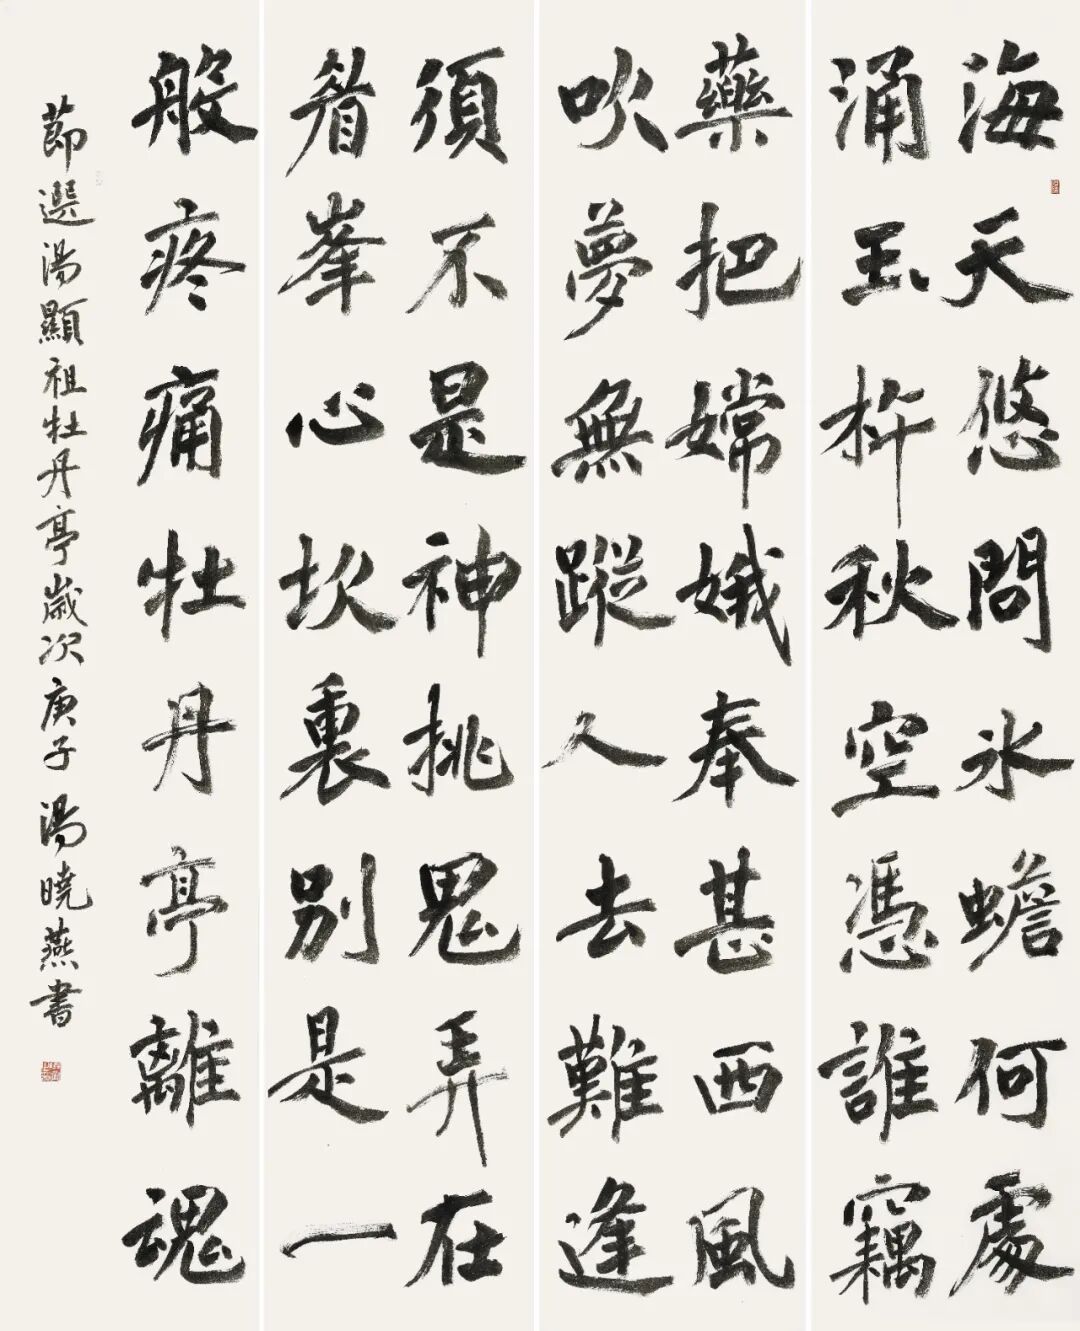 海天悠問氷蟾何處
涌玉杵秋空憑誰竊
藥把嫦娥奉甚西風
吹夢無蹤人去難逢
須不是神挑鬼弄在
着峯心坎裏別是一
般疼痛牡丹亭離魂
節選湯顯祖牡丹亭歲次庚子湯曉燕書